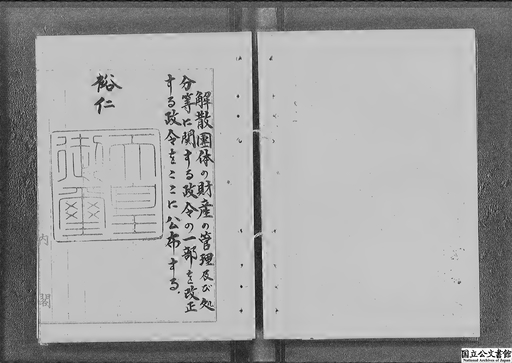 解散團体の財産の管理及び処
分等に関する政令の一部を改正
する政令をここに公布する。
裕仁
天皇
御璽
内閣
国立公文書館
National Archives of Japan